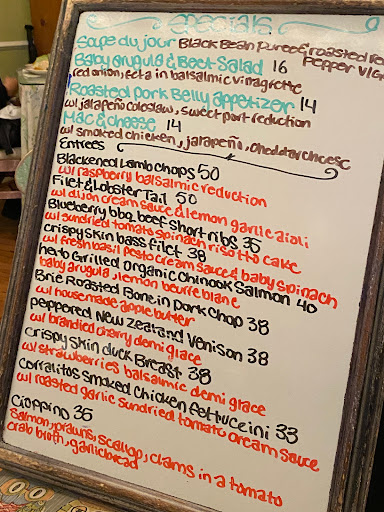 specials
Soupe du jour Black Bean Puree & roasted red
pepper
Baby arugula & Beet Salad 16
red onion, feta in balsalmic vinagrette
Roasted pork Belly appetizer 14
w/ jalapeño coleslaw, sweet port reduction
Mac & cheese 14
w/ smoked chicken, jalapeño, cheddar cheese
Entrees
Blackened Lamb chops 50
w/ raspberry balsalmic reduction
Filet & Lobster Tail 50
w/ dijon cream sauce & lemon garlic aioli
Blueberry bbq beef short ribs 35
w/ sundried tomato spinach risotto cake
crispy skin bass filet 38
w/ fresh basil pesto cream sauce & baby spinach
herb Grilled organic Chinook Salmon 40
baby arugula, lemon beurre blanc
Brie Roasted Bone in Pork Chop 38
w/ housemade apple butter
peppered New Zealand Venison 38
w/ brandied cherry demi glace
Crispy skin duck Breast 38
w/ strawberries balsalmic demi glace
Corralitos smoked Chicken fettuccini 33
w/ roasted garlic sundried tomato cream sauce
Cioppino 36
Salmon, prawns, scallop, clams in a tomato
crab broth, garlic bread